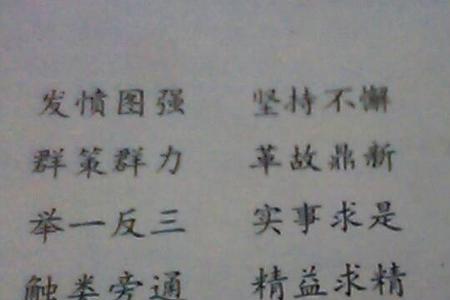 发愤图强 坚持不懈
群策群力 革故鼎新
举一反三 实事求是
触类旁通 精益求精